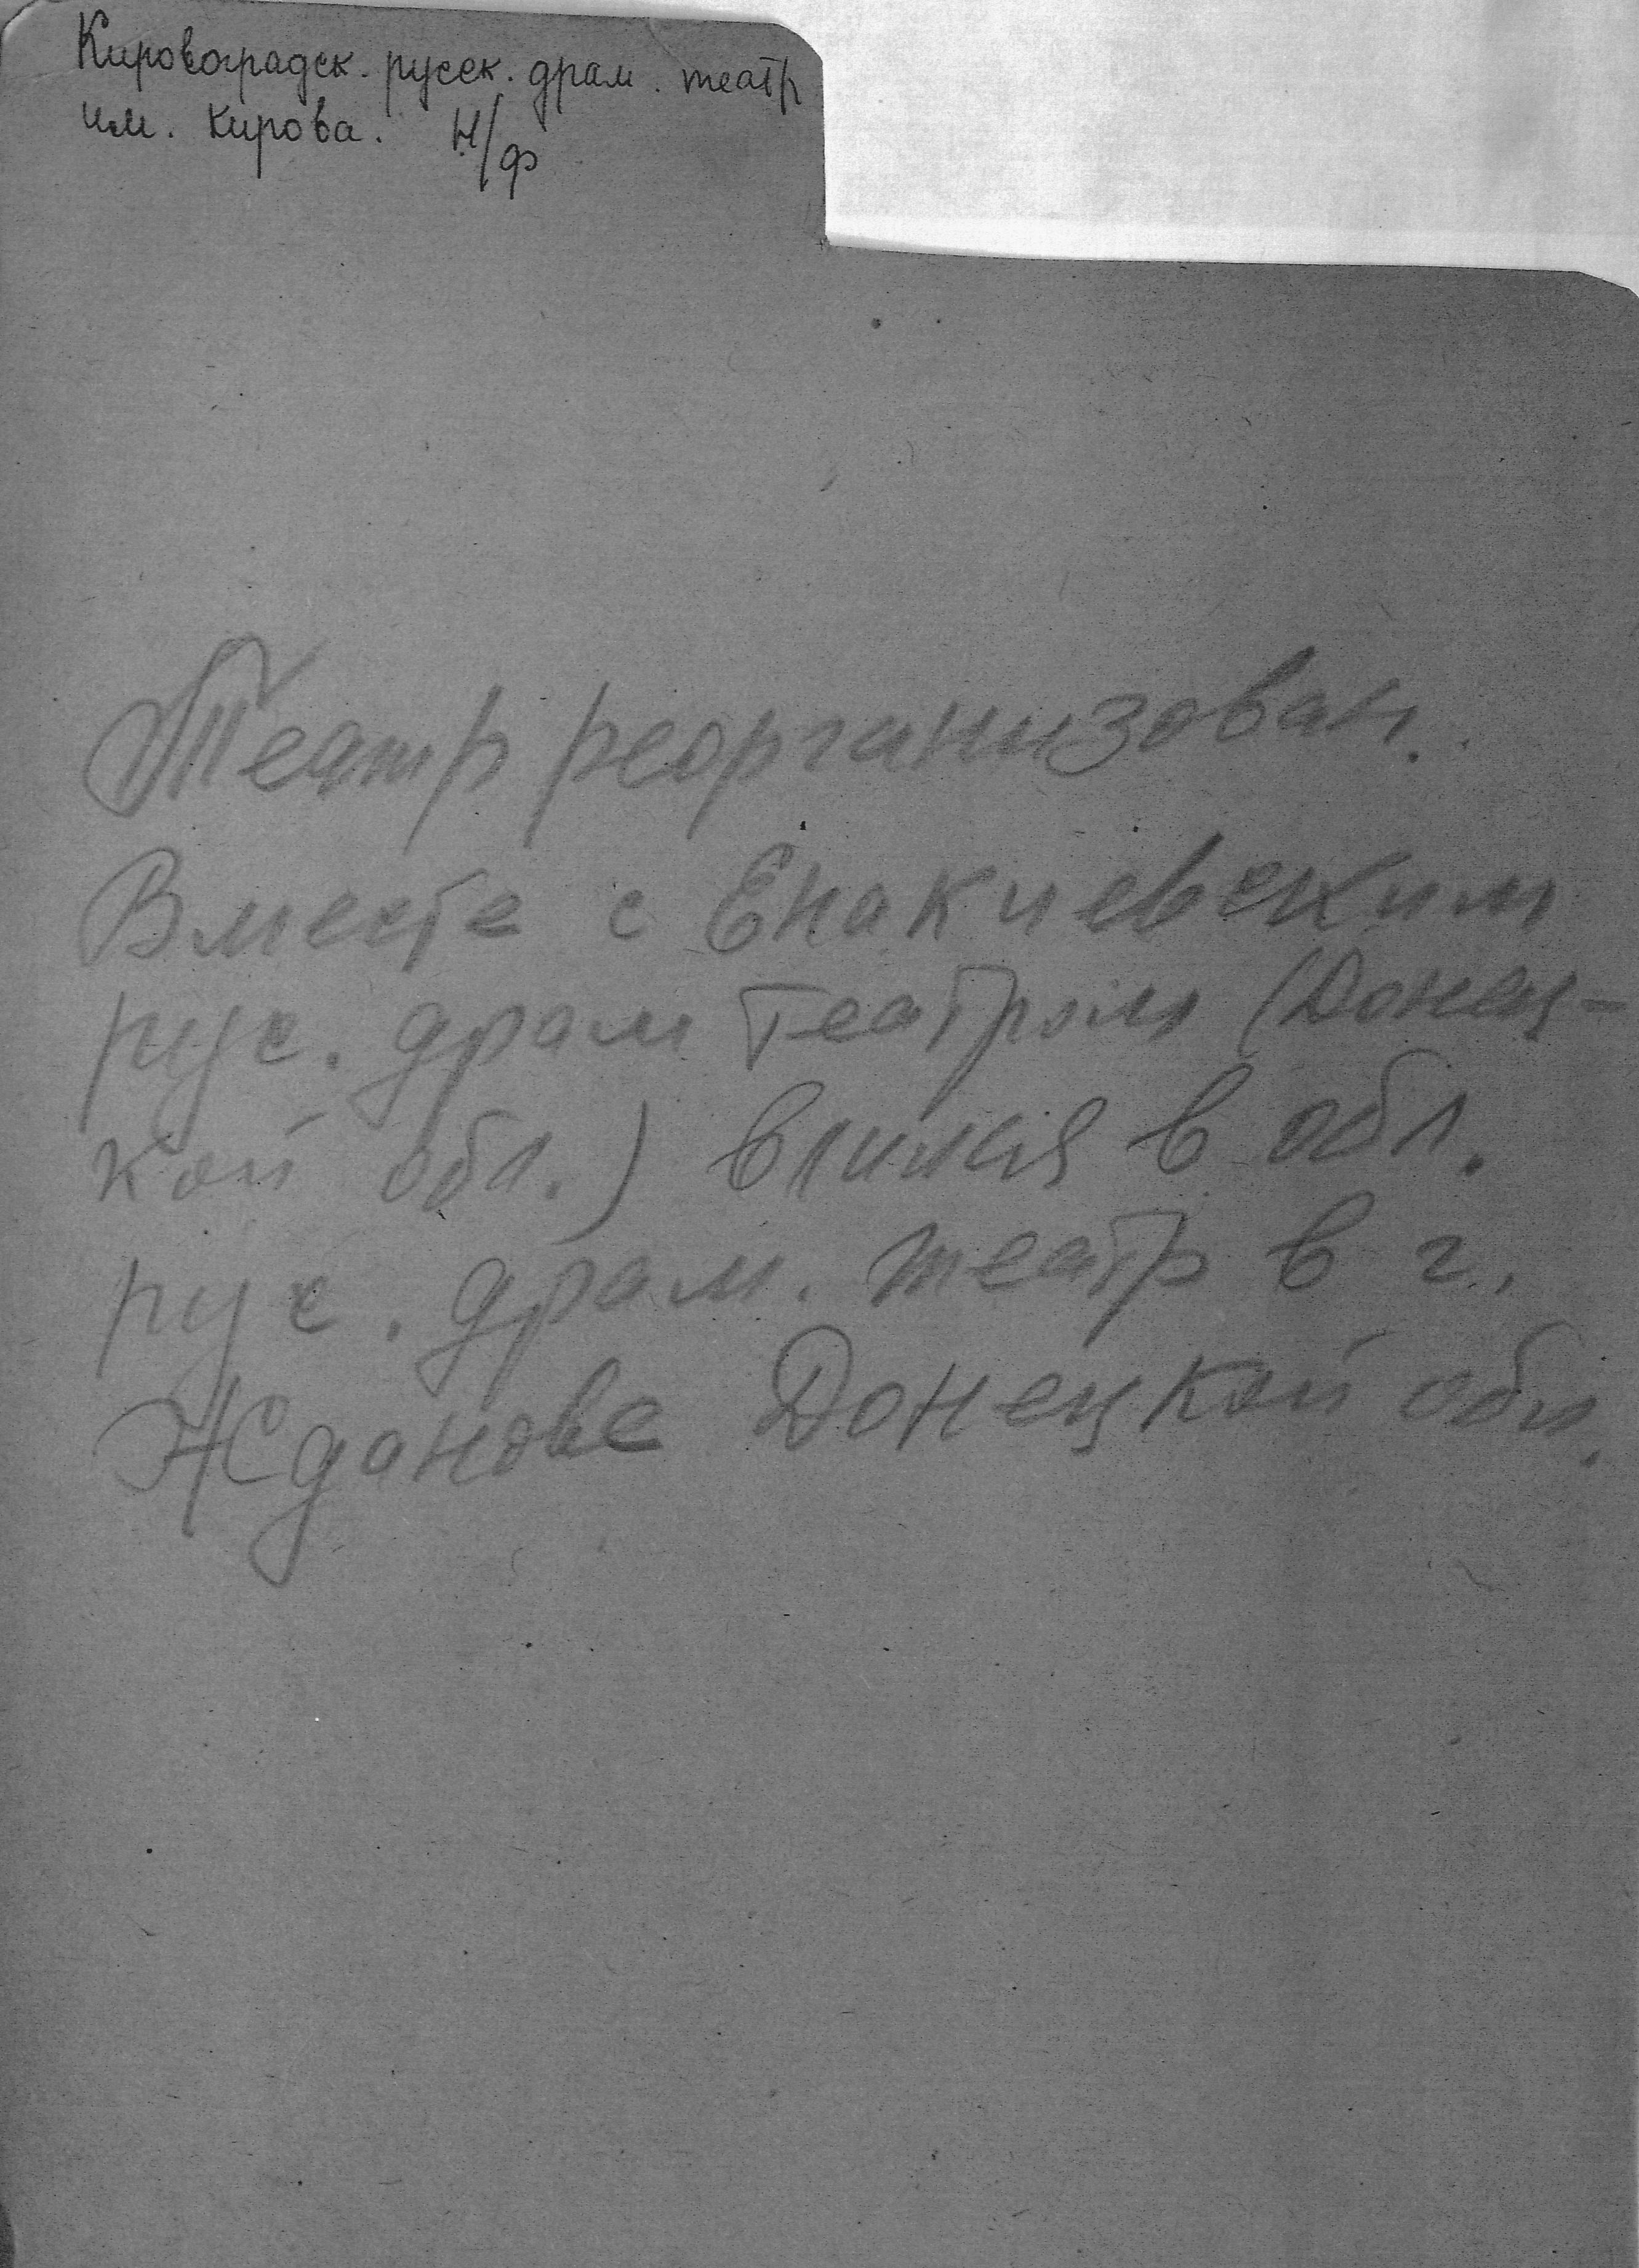 Кировоградск. русск. драм. театр
им. Кирова. Н/ф
Театр реорганизован.
Вместе с Енакиевским
рус. драм театром (Донец-
кой обл.) влился в обл.
рус. драм. театр в г.
Жданове Донецкой обл.